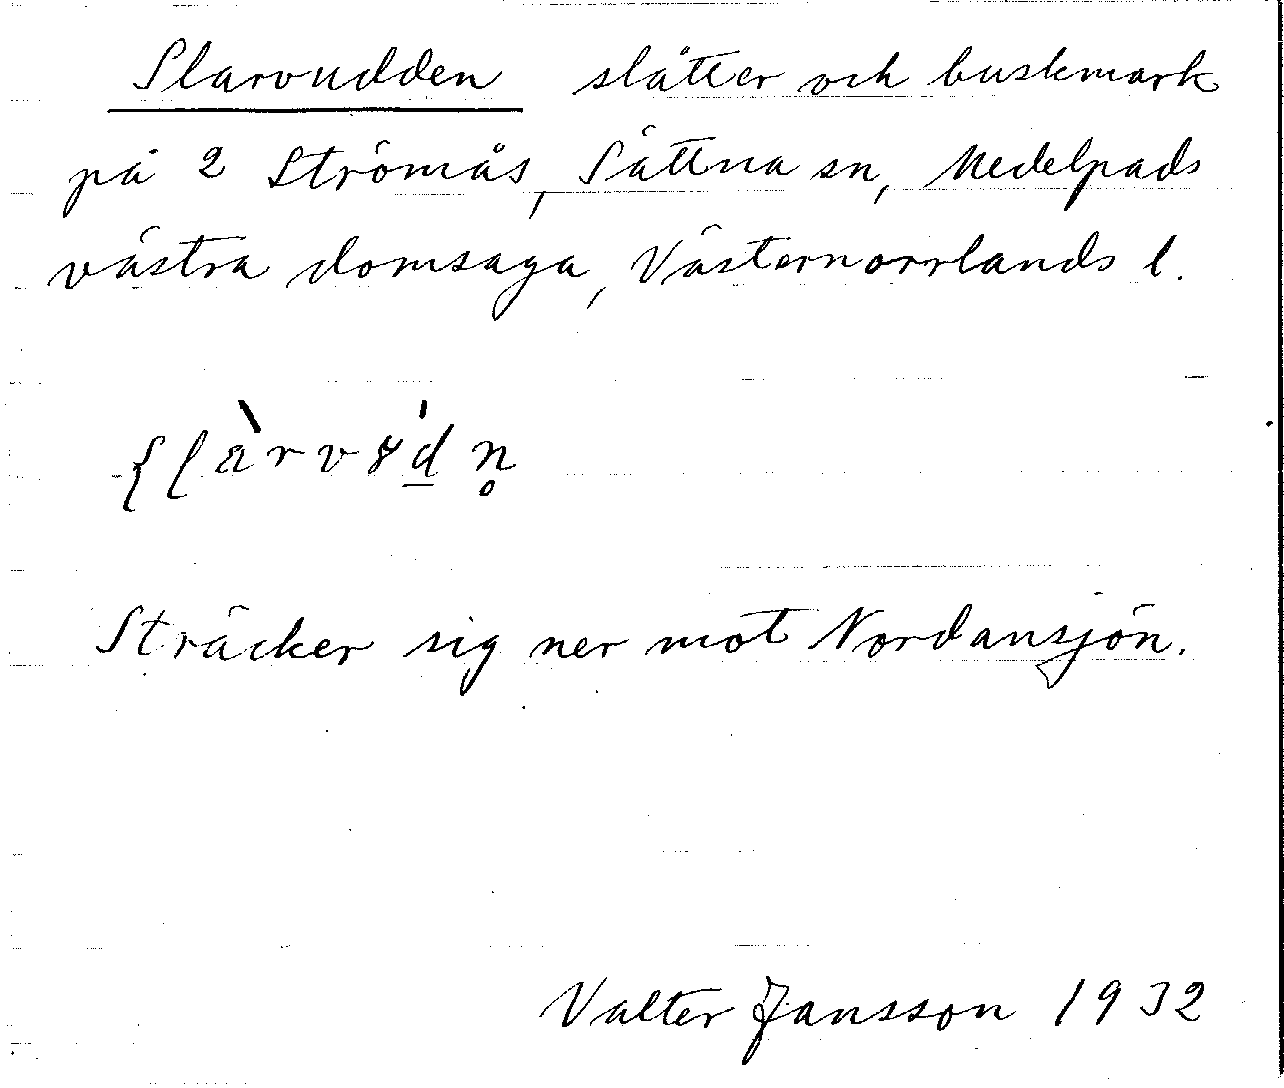 Slarvudden slåtter och buskmark
på 2 Strömås, Sättna sn, Medelpads
västra domsaga, Västernorrlands l.
Sträcker sig ner mot Nordansjön.
Valter Jansson 1932